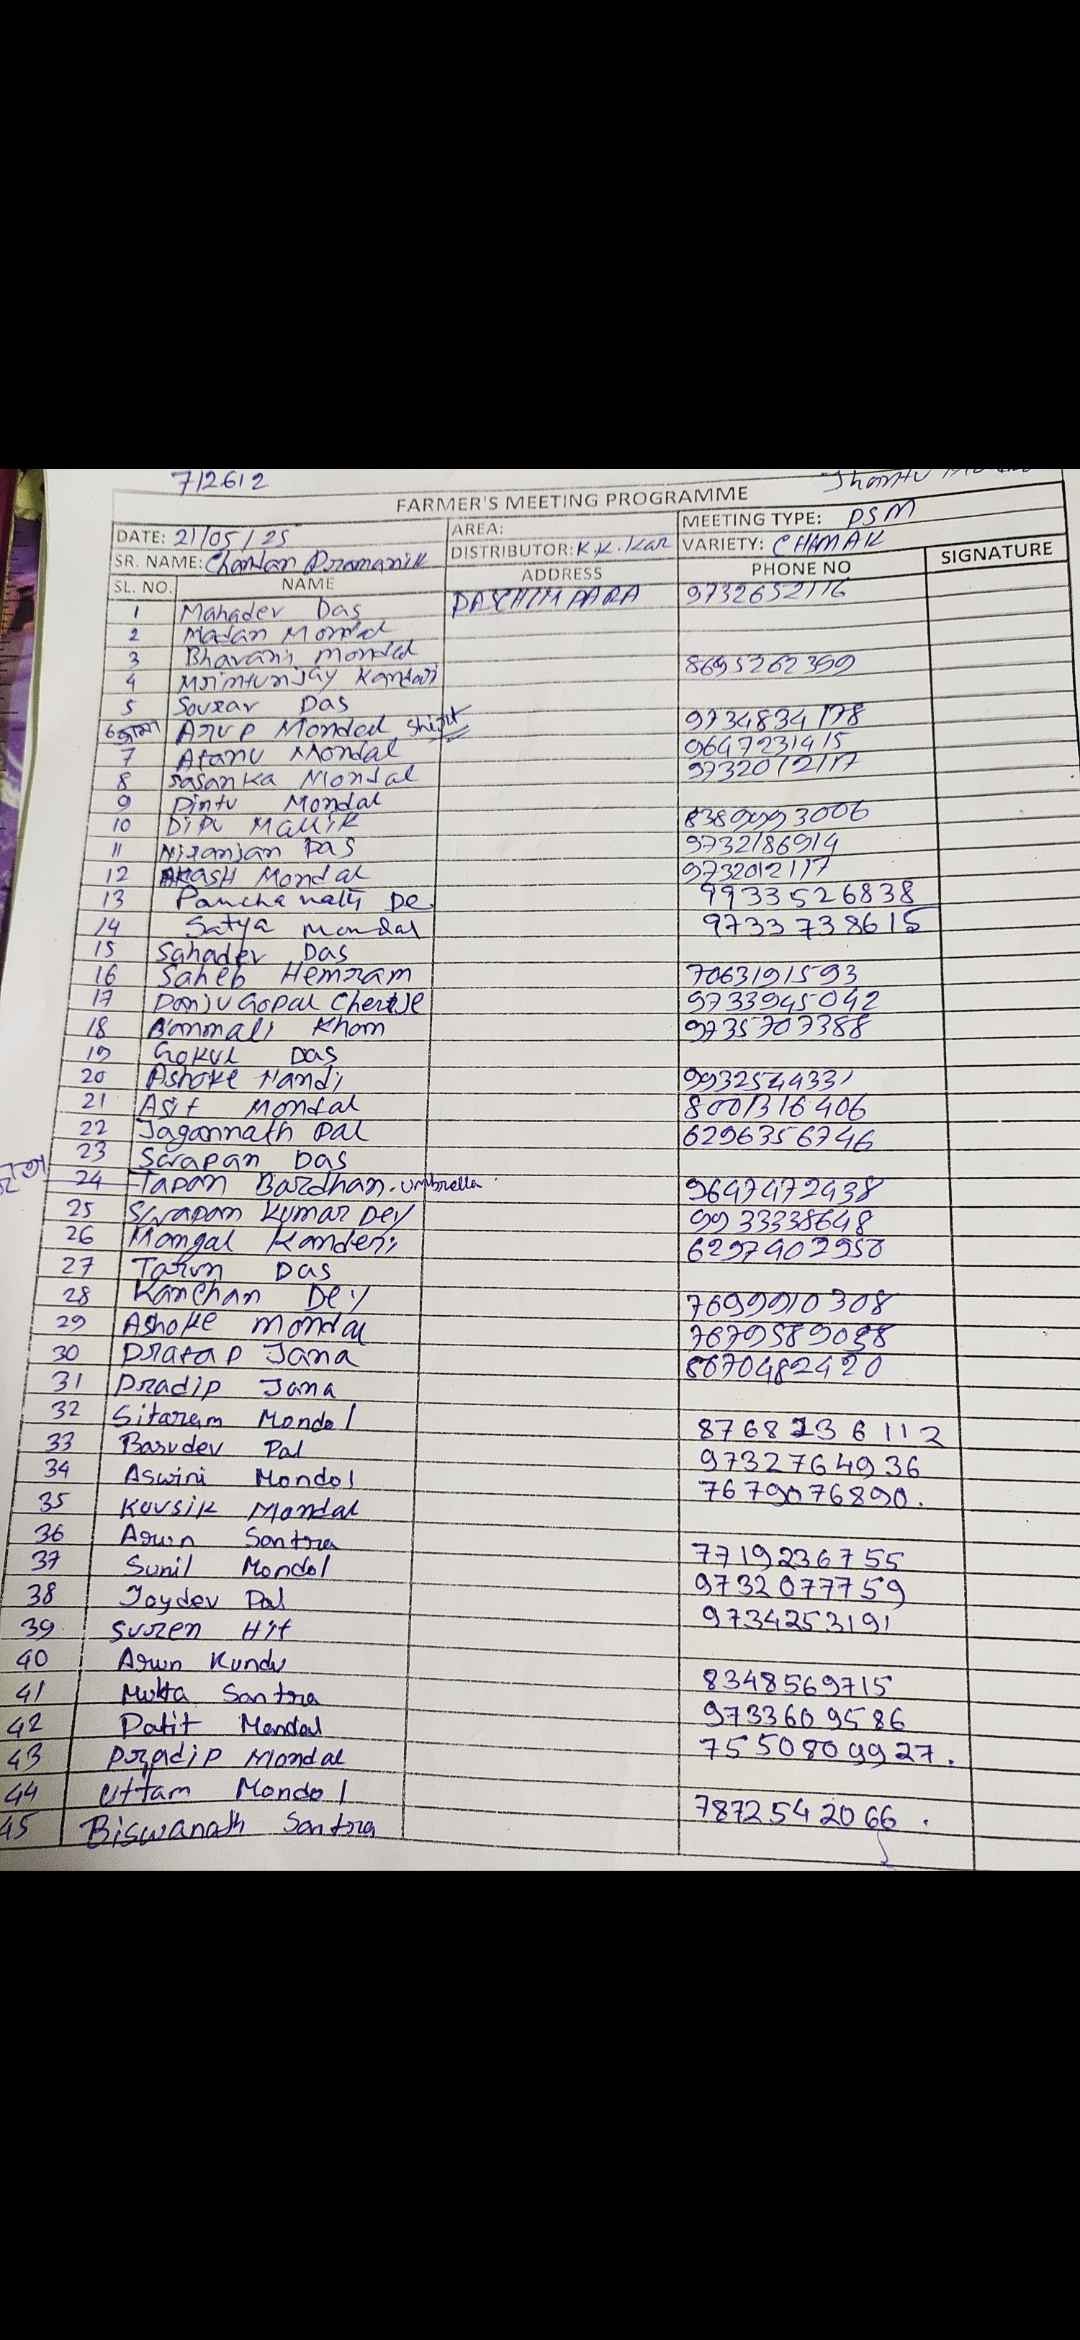 712612
FARMER'S MEETING PROGRAMME
DATE: 21/05/25 AREA: MEETING TYPE: PSM
SR. NAME: Chandan Pramanik DISTRIBUTOR: K.K. Kar VARIETY: CHAMAK
SL. NO. NAME ADDRESS PHONE NO SIGNATURE
1 Mahadev Das PASCHIMPARA 9732652116
2 Madan Mondal
3 Bhavani Mondal
4 Kandari 8695262399
5 Sourav Das
6 Arup Mondal 9734834178
7 Atanu Mondal 9647231415
8 Sasanka Mondal 9732012117
9 Pintu Mondal
10 Dipu Mallik 8389993006
11 Niranjan Das 9732186914
12 Akash Mondal 9732012117
13 Panchanath De 9933526838
14 Satya Mondal 9733738615
15 Sahadev Das
16 Saheb Hemram 7063191593
17 Gopal 9733945042
18 Banmali 9735707388
19 Gokul Das
20 Ashoke Nandi 9932544331
21 Asit Mondal 8001316406
22 Jagannath Pal 6296356746
23 Swapan Das
24 Tapan Bardhan. umbrella 9647472438
25 Swapan Kumar Dey 9933338648
26 Mangal 6297402950
27 Tarun Das
28 Kanchan Dey 7699910308
29 Ashoke Mondal 7679589038
30 Pratap Jana 8670482420
31 Pradip Jana
32 Sitaram Mondol 8768236112
33 Basudev Pal 9732764936
34 Aswini Mondol 7679076890.
35 Kousik Mondal
36 Arun Santra 7719236755
37 Sunil Mondol 9732077759
38 Joydev Pal 9734253191
39 Suren Hit
40 Arun Kundu 8348569715
41 Mukta Santra 9733609586
42 Patit Mondal 7550809927.
43 Pradip Mondal
44 Uttam Mondol 7872542066.
45 Biswanath Santra